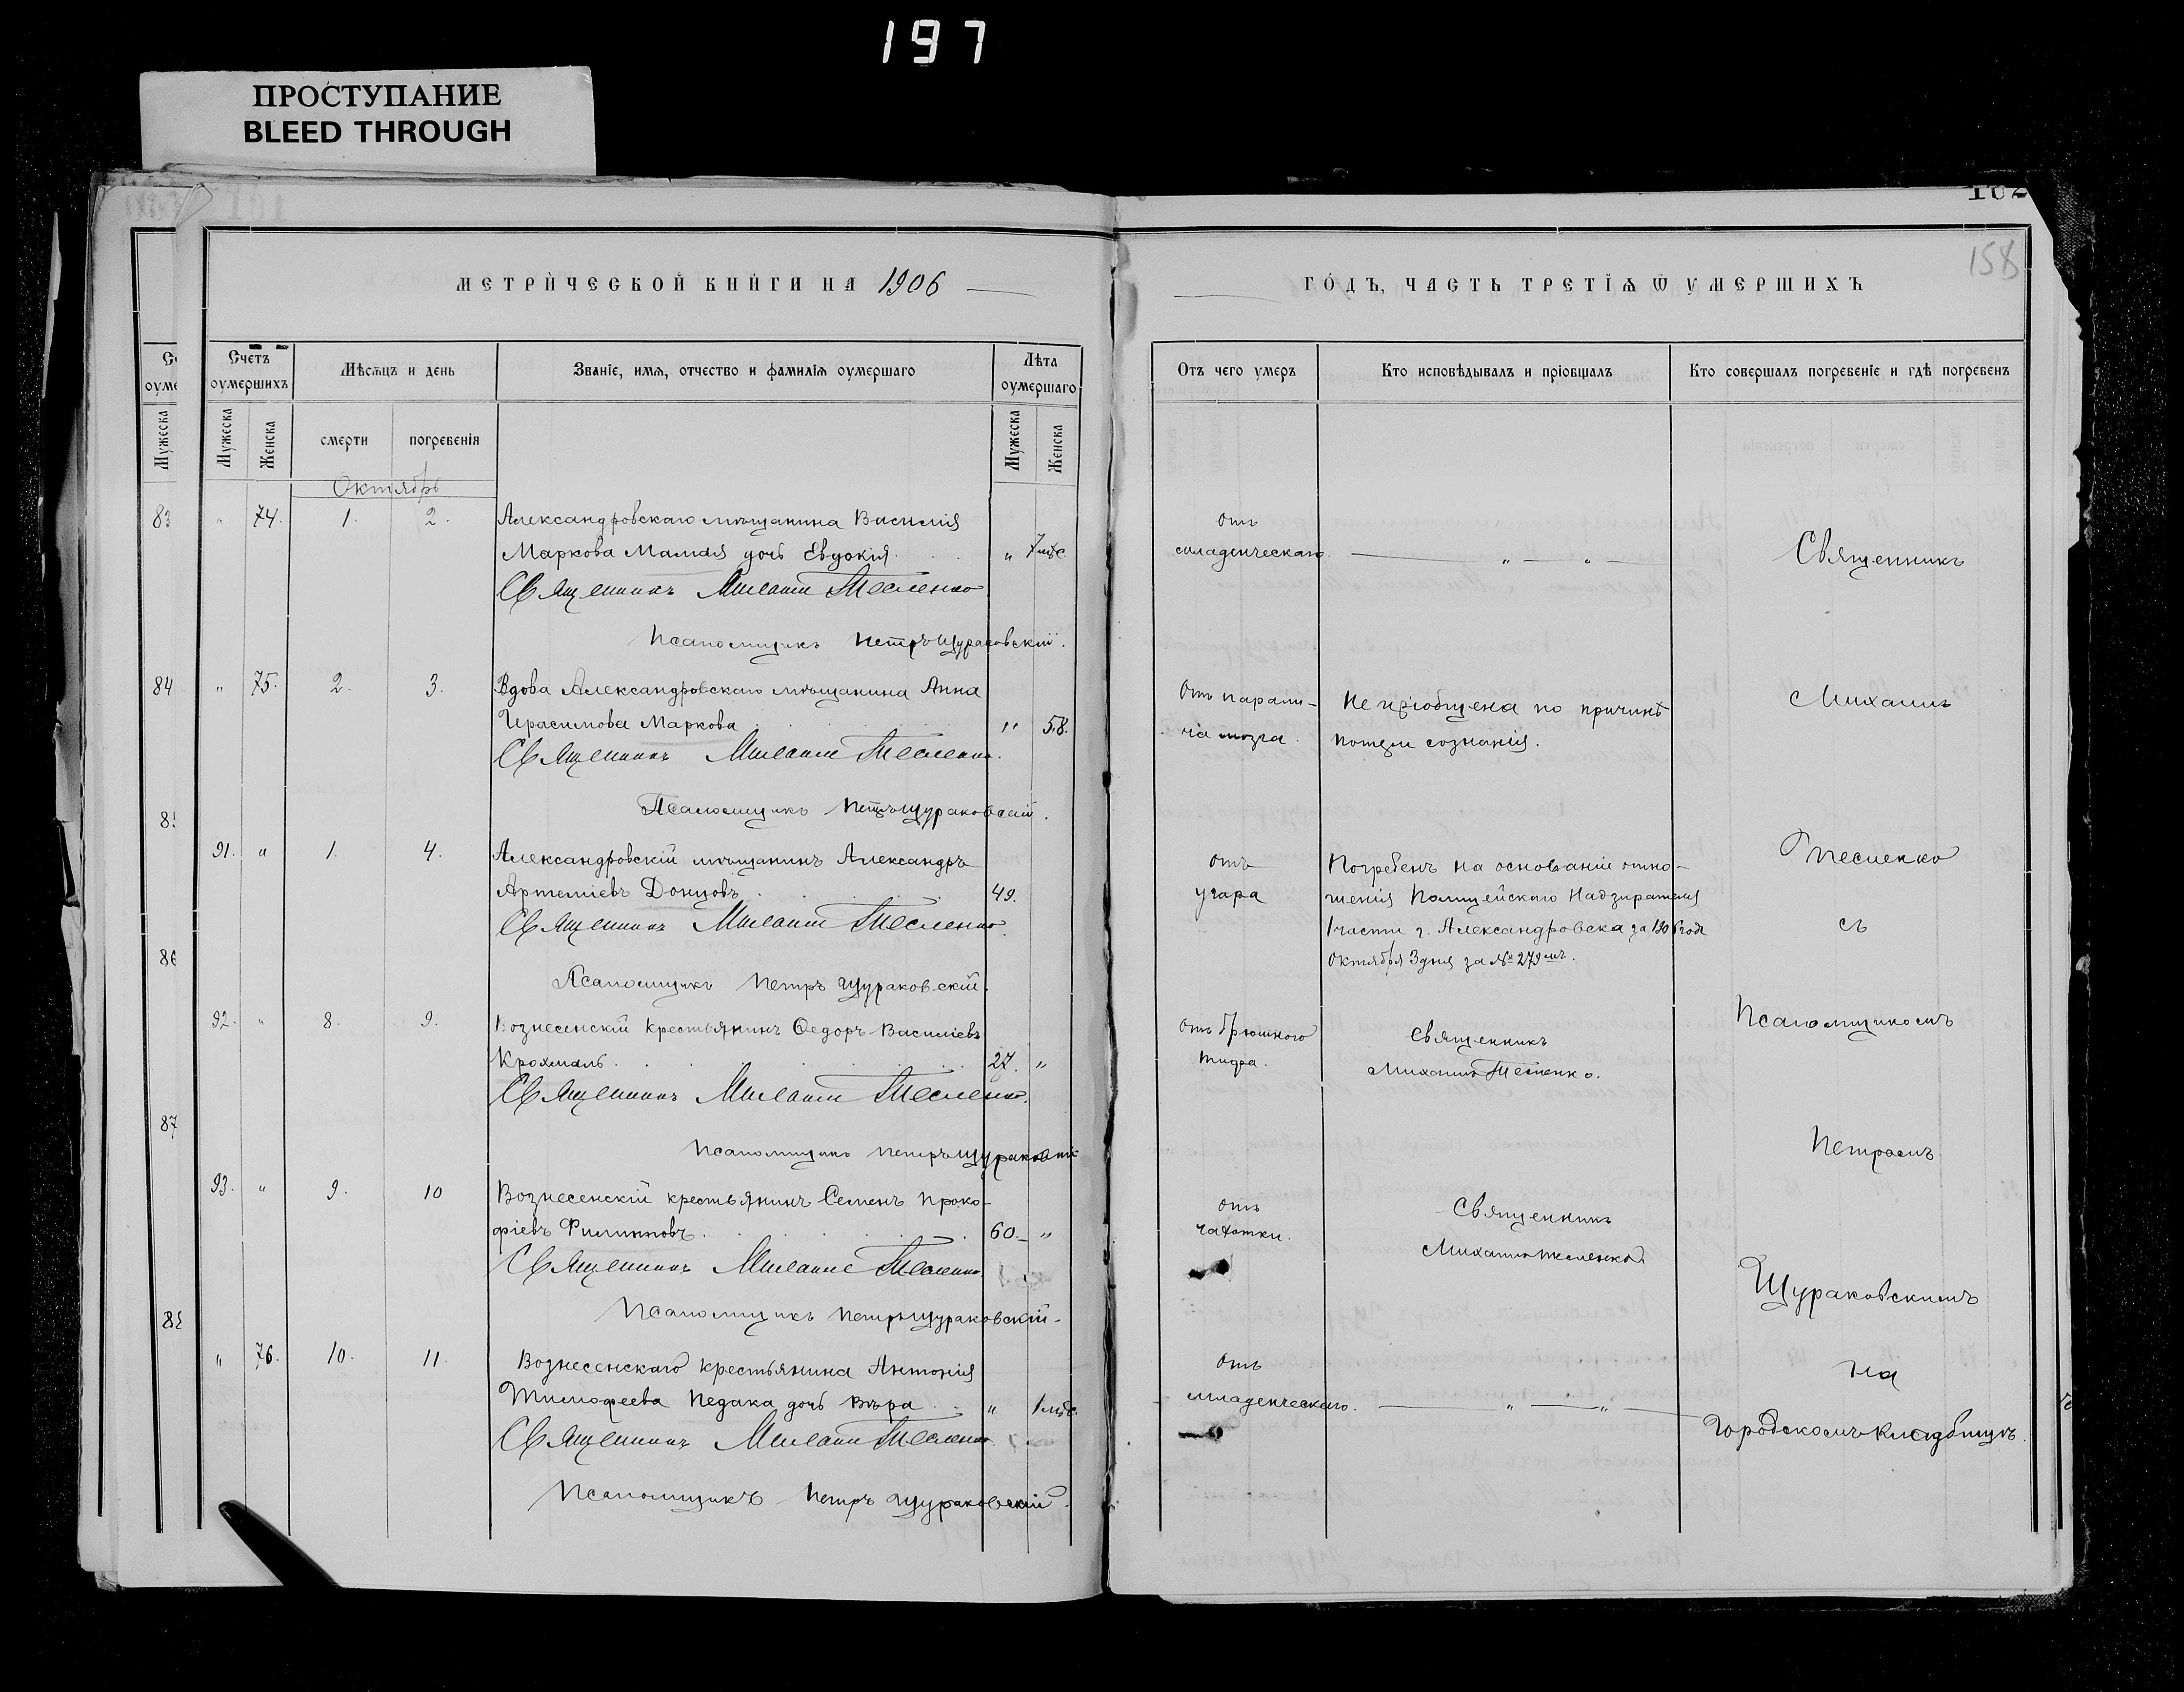 197
ПРОСТУПАНИЕ
BLEED THROUGH
158
МЕТРИЧЕСКОЙ КНИГИ НА 1906
ГОДЪ, ЧАСТЬ ТРЕТІЯ Ѿ УМЕРШИХЪ
Счетъ оумершихъ
Мѣсяцъ и день
Званіе, имя, отчество и фамилія оумершаго
Лѣта оумершаго
Отъ чего умеръ
Кто исповѣдывалъ и пріобщалъ
Кто совершалъ погребеніе и гдѣ погребенъ
Мужеска
Мужеска
Женска
смерти
погребенія
Мужеска
Женска
Октябрь
83
" 74. 1. 2. Александровскаго мѣщанина Василія
Маркова Мамая дочь Евдокія. " 7 мѣс
отъ
младенческаго.
Священникъ Михаилъ Тесленко
Псаломщикъ Петръ Щураковскій.
84
" 75. 2. 3. Вдова Александровскаго мѣщанина Анна
Герасимова Маркова " 58.
Отъ парали-
ча мозга.
Не пріобщена по причинѣ
потери сознанія.
Священникъ Михаилъ Тесленко.
Псаломщикъ Петръ Щураковскій.
91. " 1. 4. Александровскій мѣщанинъ Александръ
Артеміевъ Донцовъ. 49.
отъ
угара
Погребенъ на основаніи отно-
шенія Полицейскаго Надзирателя
1 части г. Александровска за 1906 года
Октября 3 дня за № 279 мъ.
Священникъ Михаилъ Тесленко.
86
Псаломщикъ Петръ Щураковскій.
92. " 8. 9. Вознесенскій крестьянинъ Ѳедоръ Василіевъ
Крохмаль. 27. "
Отъ брюшного
тифа.
Священникъ
Михаилъ Тесленко.
Священникъ Михаилъ Тесленко.
87
Псаломщикъ Петръ Щураковскій
93. " 9. 10 Вознесенскій крестьянинъ Семенъ Проко-
фіевъ Филипповъ. 60. "
отъ
чахотки.
Священникъ
Михаилъ Тесленко.
Священникъ Михаилъ Тесленко.
Псаломщикъ Петръ Щураковскій.
" 76. 10. 11. Вознесенскаго крестьянина Антонія
Тимофеева Педака дочь Вѣра. " 1 мѣс.
отъ
младенческаго.
Священникъ Михаилъ Тесленко
Псаломщикъ Петръ Щураковскій.
Священникъ
Михаилъ
Тесленко
съ
Псаломщикомъ
Петромъ
Щураковскимъ
на
Городскомъ кладбищѣ.